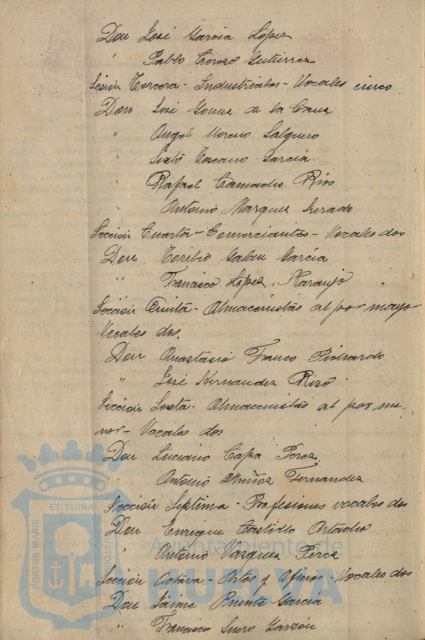 Don José García López
" Pablo Gutierrez
Sección Tercera - Industriales - Vocales cinco
Don José Gomez de la Cruz
" Angel Moreno Salguero
" Sixto Toscano Garcia
" Rafael Camacho Rios
" Antonio Marquez
Sección Cuarta - Comerciantes - Vocales dos
Don Toribio Galan Garcia
" Francisco López Naranjo
Sección Quinta - Almacenistas al por mayor
Vocales dos.
Don Anastasio Franco
" José Hernandez Rizo
Sección Sexta - Almacenistas al por me-
nor - Vocales dos
Don Luciano Capa Perez
" Antonio Muñoz Fernandez
Sección Septima - Profesiones vocales dos
Don Enrique Castillo
" Antonio Vazquez Perez
Sección Octava - Artes y Oficios - Vocales dos
Don Jaime Puente Garcia
" Francisco Garzón
PORTUS MARIS ET TERRAE CUSTODIA
Ayuntamiento de
HUELVA